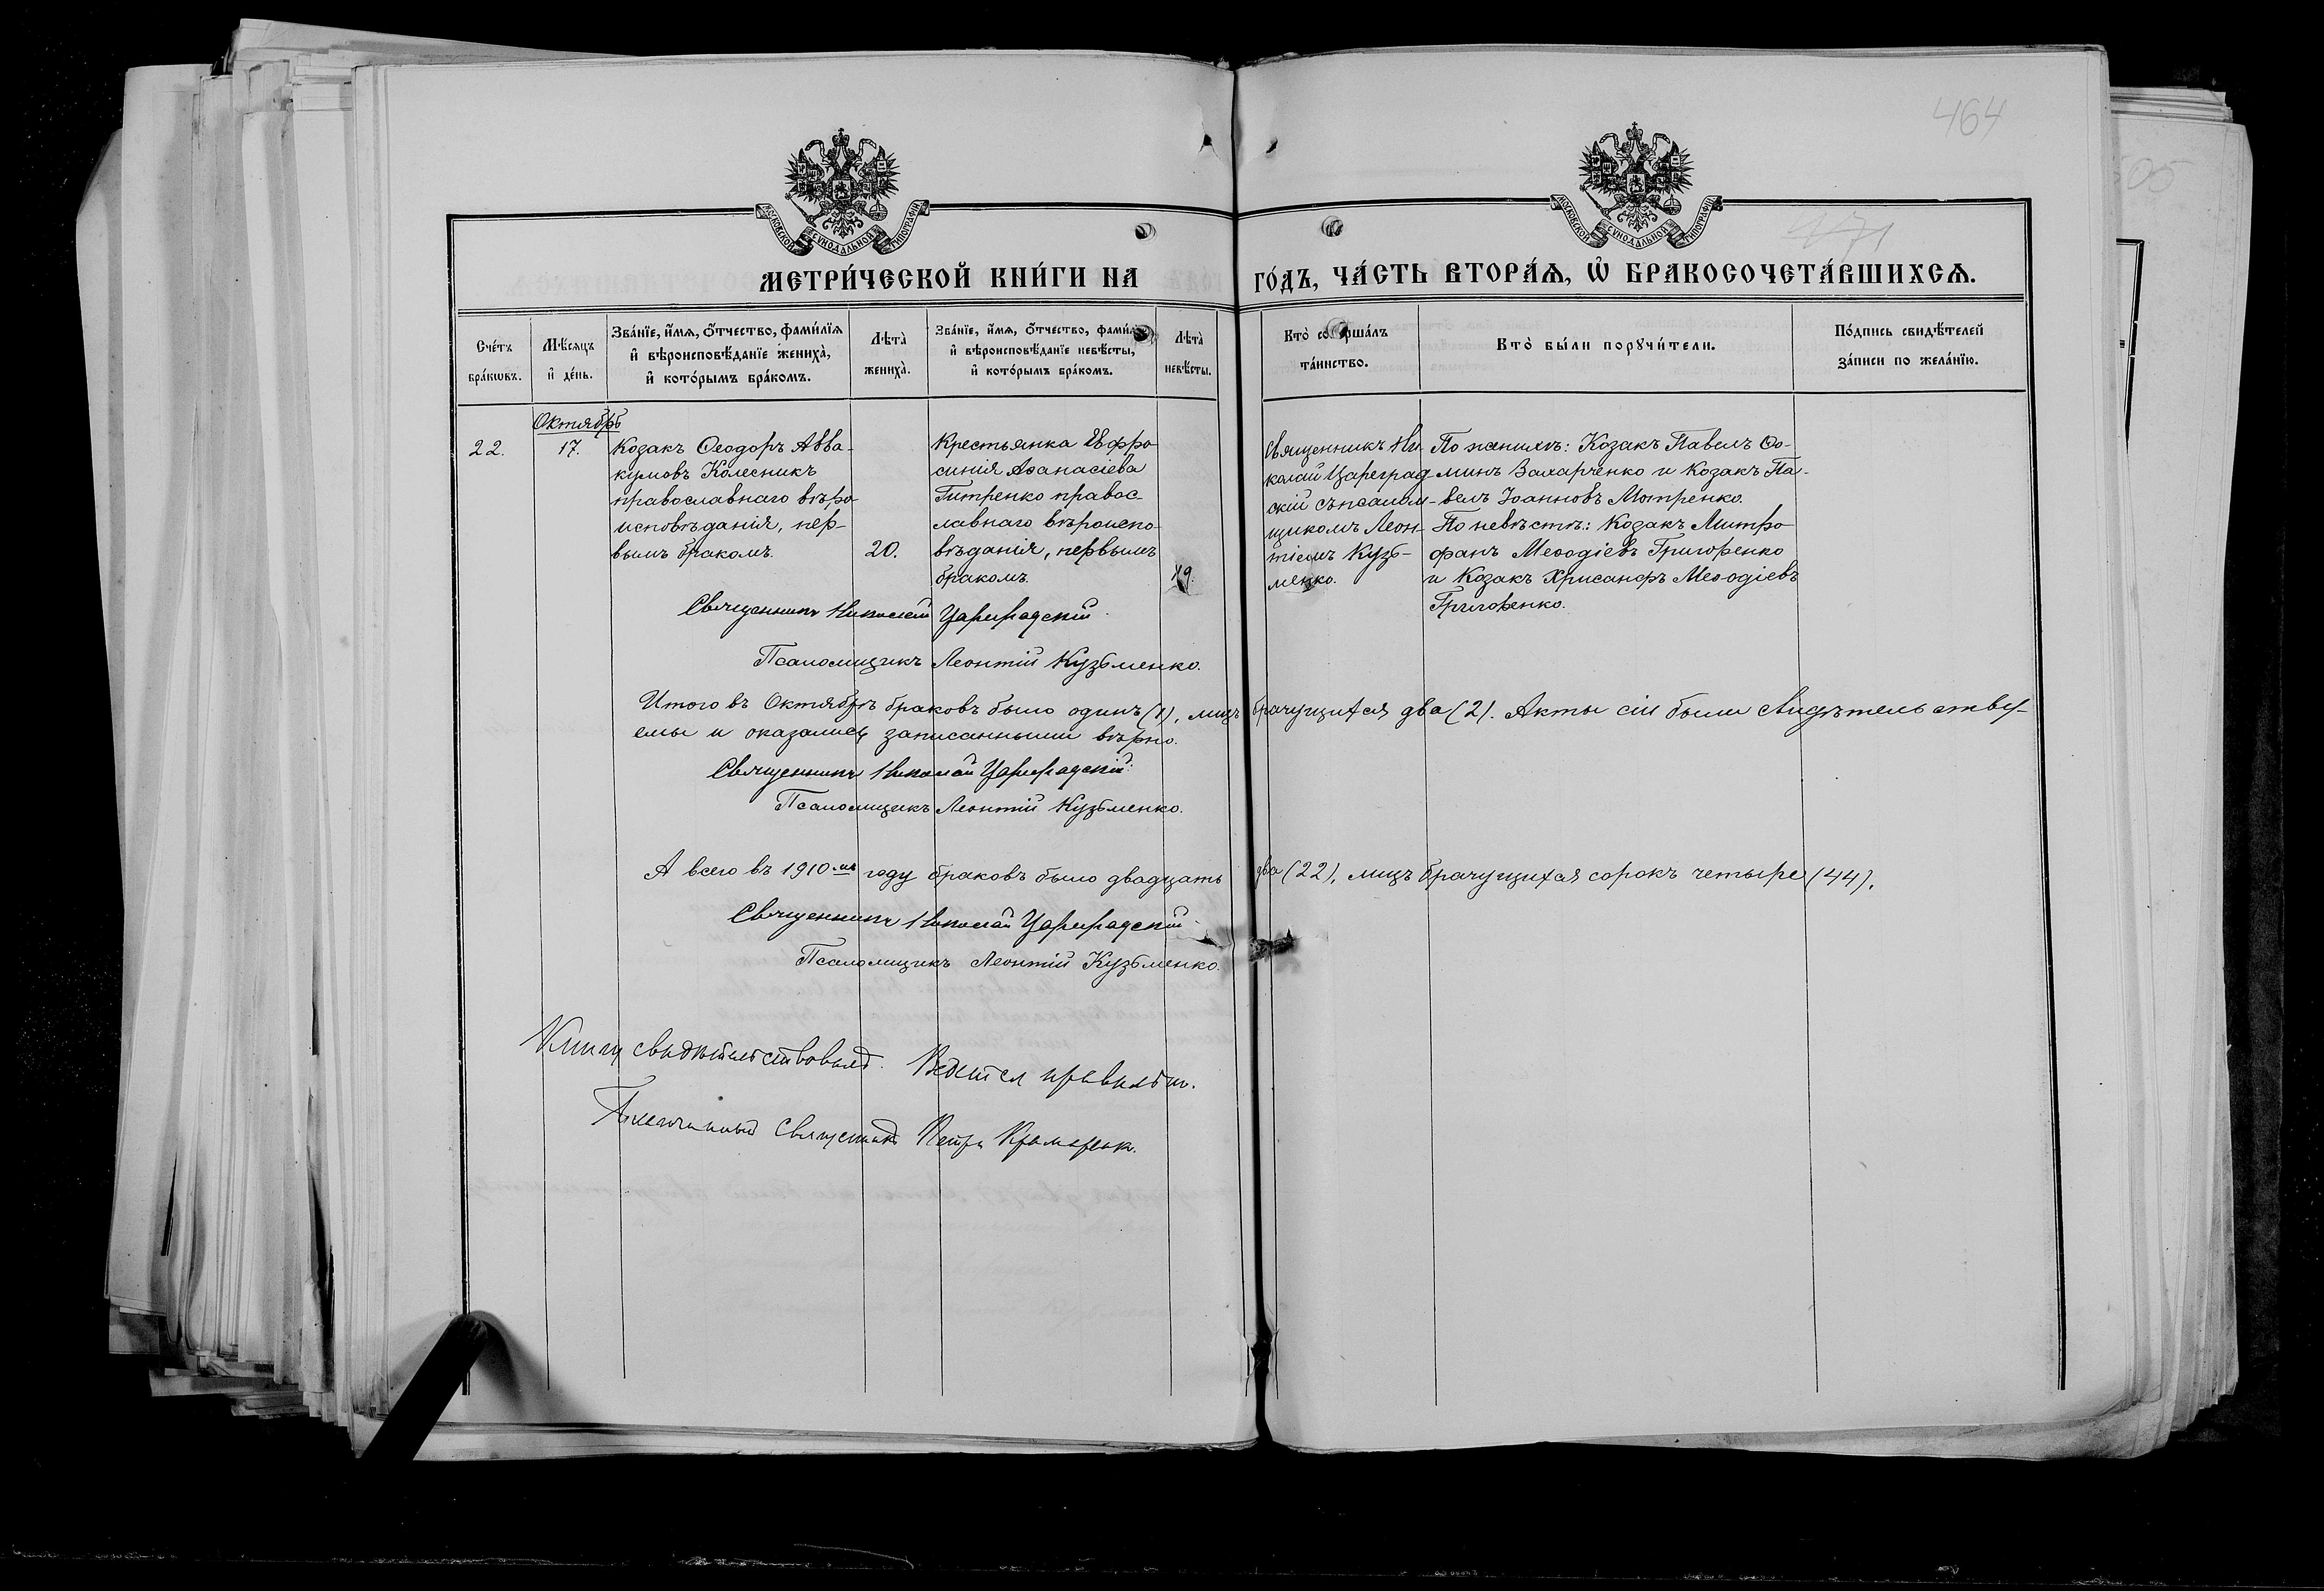 464
505
171
МОСКОВСКОЙ СѴНОДАЛЬНОЙ ТИПОГРАФІИ
МОСКОВСКОЙ СѴНОДАЛЬНОЙ ТИПОГРАФІИ
МЕТРИ́ЧЕСКОЙ КНИ́ГИ НА
ГО́ДЪ, ЧА́СТЬ ВТОРА́Ѧ, Ѽ БРАКОСОЧЕТА́ВШИХСѦ.
Сче́тъ бра́кѡвъ.
Мѣ́сѧцъ и҆ де́нь.
Зва́нїе, и҆́мѧ, ѻ҆́тчество, фами́лїѧ
и҆ вѣроисповѣ́данїе жениха̀,
и҆ кото́рымъ бра́комъ.
Лѣ́та̀ жениха̀.
Зва́нїе, и҆́мѧ, ѻ҆́тчество, фами́л
и҆ вѣроисповѣ́данїе невѣ́сты,
и҆ кото́рымъ бра́комъ.
Лѣ́та̀ невѣ́сты.
Кто̀ со ерша́лъ
та́инство.
Кто̀ бы́ли порꙋчи́тели.
По́дпись свидѣ́телей
за́писи по жела́нїю.
Октябрь
22.
17.
Козакъ Ѳеодоръ Авва-
кумовъ Колесникъ
православнаго вѣро-
исповѣданія, пер-
вымъ бракомъ.
20.
Крестьянка Евфро-
синія Аѳанасіева
Титренко правос-
лавнаго вѣроиспо-
вѣданія, первымъ
бракомъ.
19.
Священникъ Ни-
колай Цареград-
скій съ псалом-
щикомъ Леон-
тіемъ Кузь-
менко.
По женихѣ: Козакъ Павелъ Ѳо-
минъ Захарченко и Козакъ Па-
велъ Іоанновъ Мотренко.
По невѣстѣ: Козакъ Митро-
фанъ Меѳодіевъ Григоренко
и Козакъ Хрисанфъ Меѳодіевъ
Григоренко.
Священникъ Николай Цареградскій
Псаломщикъ Леонтій Кузьменко.
Итого въ Октябрѣ браковъ было одинъ (1), лицъ брачущихся два (2). Акты сіи были свидѣтельству-
емы и оказались записанными вѣрно.
Священникъ Николай Цареградскій.
Псаломщикъ Леонтій Кузьменко.
А всего въ 1910-мъ году браковъ было двадцать два (22), лицъ брачущихся сорокъ четыре (44).
Священникъ Николай Цареградскій
Псаломщикъ Леонтій Кузьменко.
Книгу свидѣтельствовалъ. Ведется правильно.
Благочинный Священникъ Петръ Крамаренко.